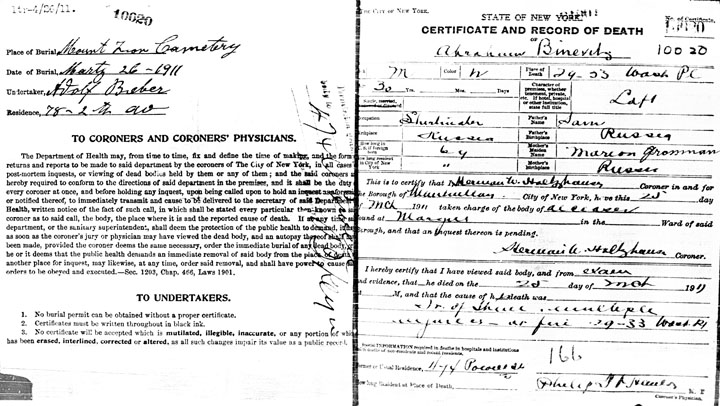 10020
Place of Burial, Mount Zion Cemetery
Date of Burial, March 26-1911
Undertaker, Adolf Bieber
Residence, 78-2th av
TO CORONERS AND CORONERS' PHYSICIANS.
The Department of Health may, from time to time, fix and define the time of making, and the form
returns and reports to be made to said department by the coroners of The City of New York, in all cases
post-mortem inquests, or viewing of dead bodies held by them or any of them; and the said coroners
hereby required to conform to the directions of said department in the premises, and it shall be the duty
every coroner at once, and before holding any inquest, upon being called upon to hold an inquest
or notified thereof, to immediately transmit and cause to be delivered to the secretary of said Department
Health, written notice of the fact of such call, in which shall be stated every particular then known
coroner as to said call, the body, the place where it is and the reported cause of death. If at any time
department, or the sanitary superintendent, shall deem the protection of the public health to demand,
as soon as the coroner's jury or physician may have viewed the dead body, and an autopsy thereof shall
been made, provided the coroner deems the same necessary, order the immediate burial of any dead body,
be or it deems that the public health demands an immediate removal of said body from the place
another place for inquest, may likewise, at any time, order said removal, and shall have power to cause
orders to be obeyed and executed.—Sec. 1203, Chap. 466, Laws 1901.
TO UNDERTAKERS.
1. No burial permit can be obtained without a proper certificate.
2. Certificates must be written throughout in black ink.
3. No certificate will be accepted which is mutilated, illegible, inaccurate, or any portion of which
has been erased, interlined, corrected or altered, as all such changes impair its value as a public record.
THE CITY OF NEW YORK.
STATE OF NEW YORK.
No. of Certificate,
CERTIFICATE AND RECORD OF DEATH
OF
Abraham Binevitz
10020
M Color W Place of Death 29-33 Wash Pl
30 Yrs. Mos. Days
Character of premises, whether tenement, private, etc. If hotel, hospital or other institution, state full title
Loft
Occupation
Father's Name Sam
Birthplace Russia
Father's Birthplace Russia
6 y
Mother's Maiden Name
Mother's Birthplace Russia
This is to certify that I Herman W. Holtzhauser Coroner in and for
the Borough of Manhattan City of New York, have this 25 day
of Mch 1911 taken charge of the body of deceased
found at Morgue in the Ward of said
Borough, and that an inquest thereon is pending.
Herman W. Holtzhauser Coroner.
I hereby certify that I have viewed said body, and from exam
and evidence, that he died on the 25 day of Mch 1911
M, and that the cause of h death was
multiple
injuries 29-33 Wash Pl
166
Former or Usual Residence, 474 Powell St
How long Resident at Place of Death,
Coroner's Physician.